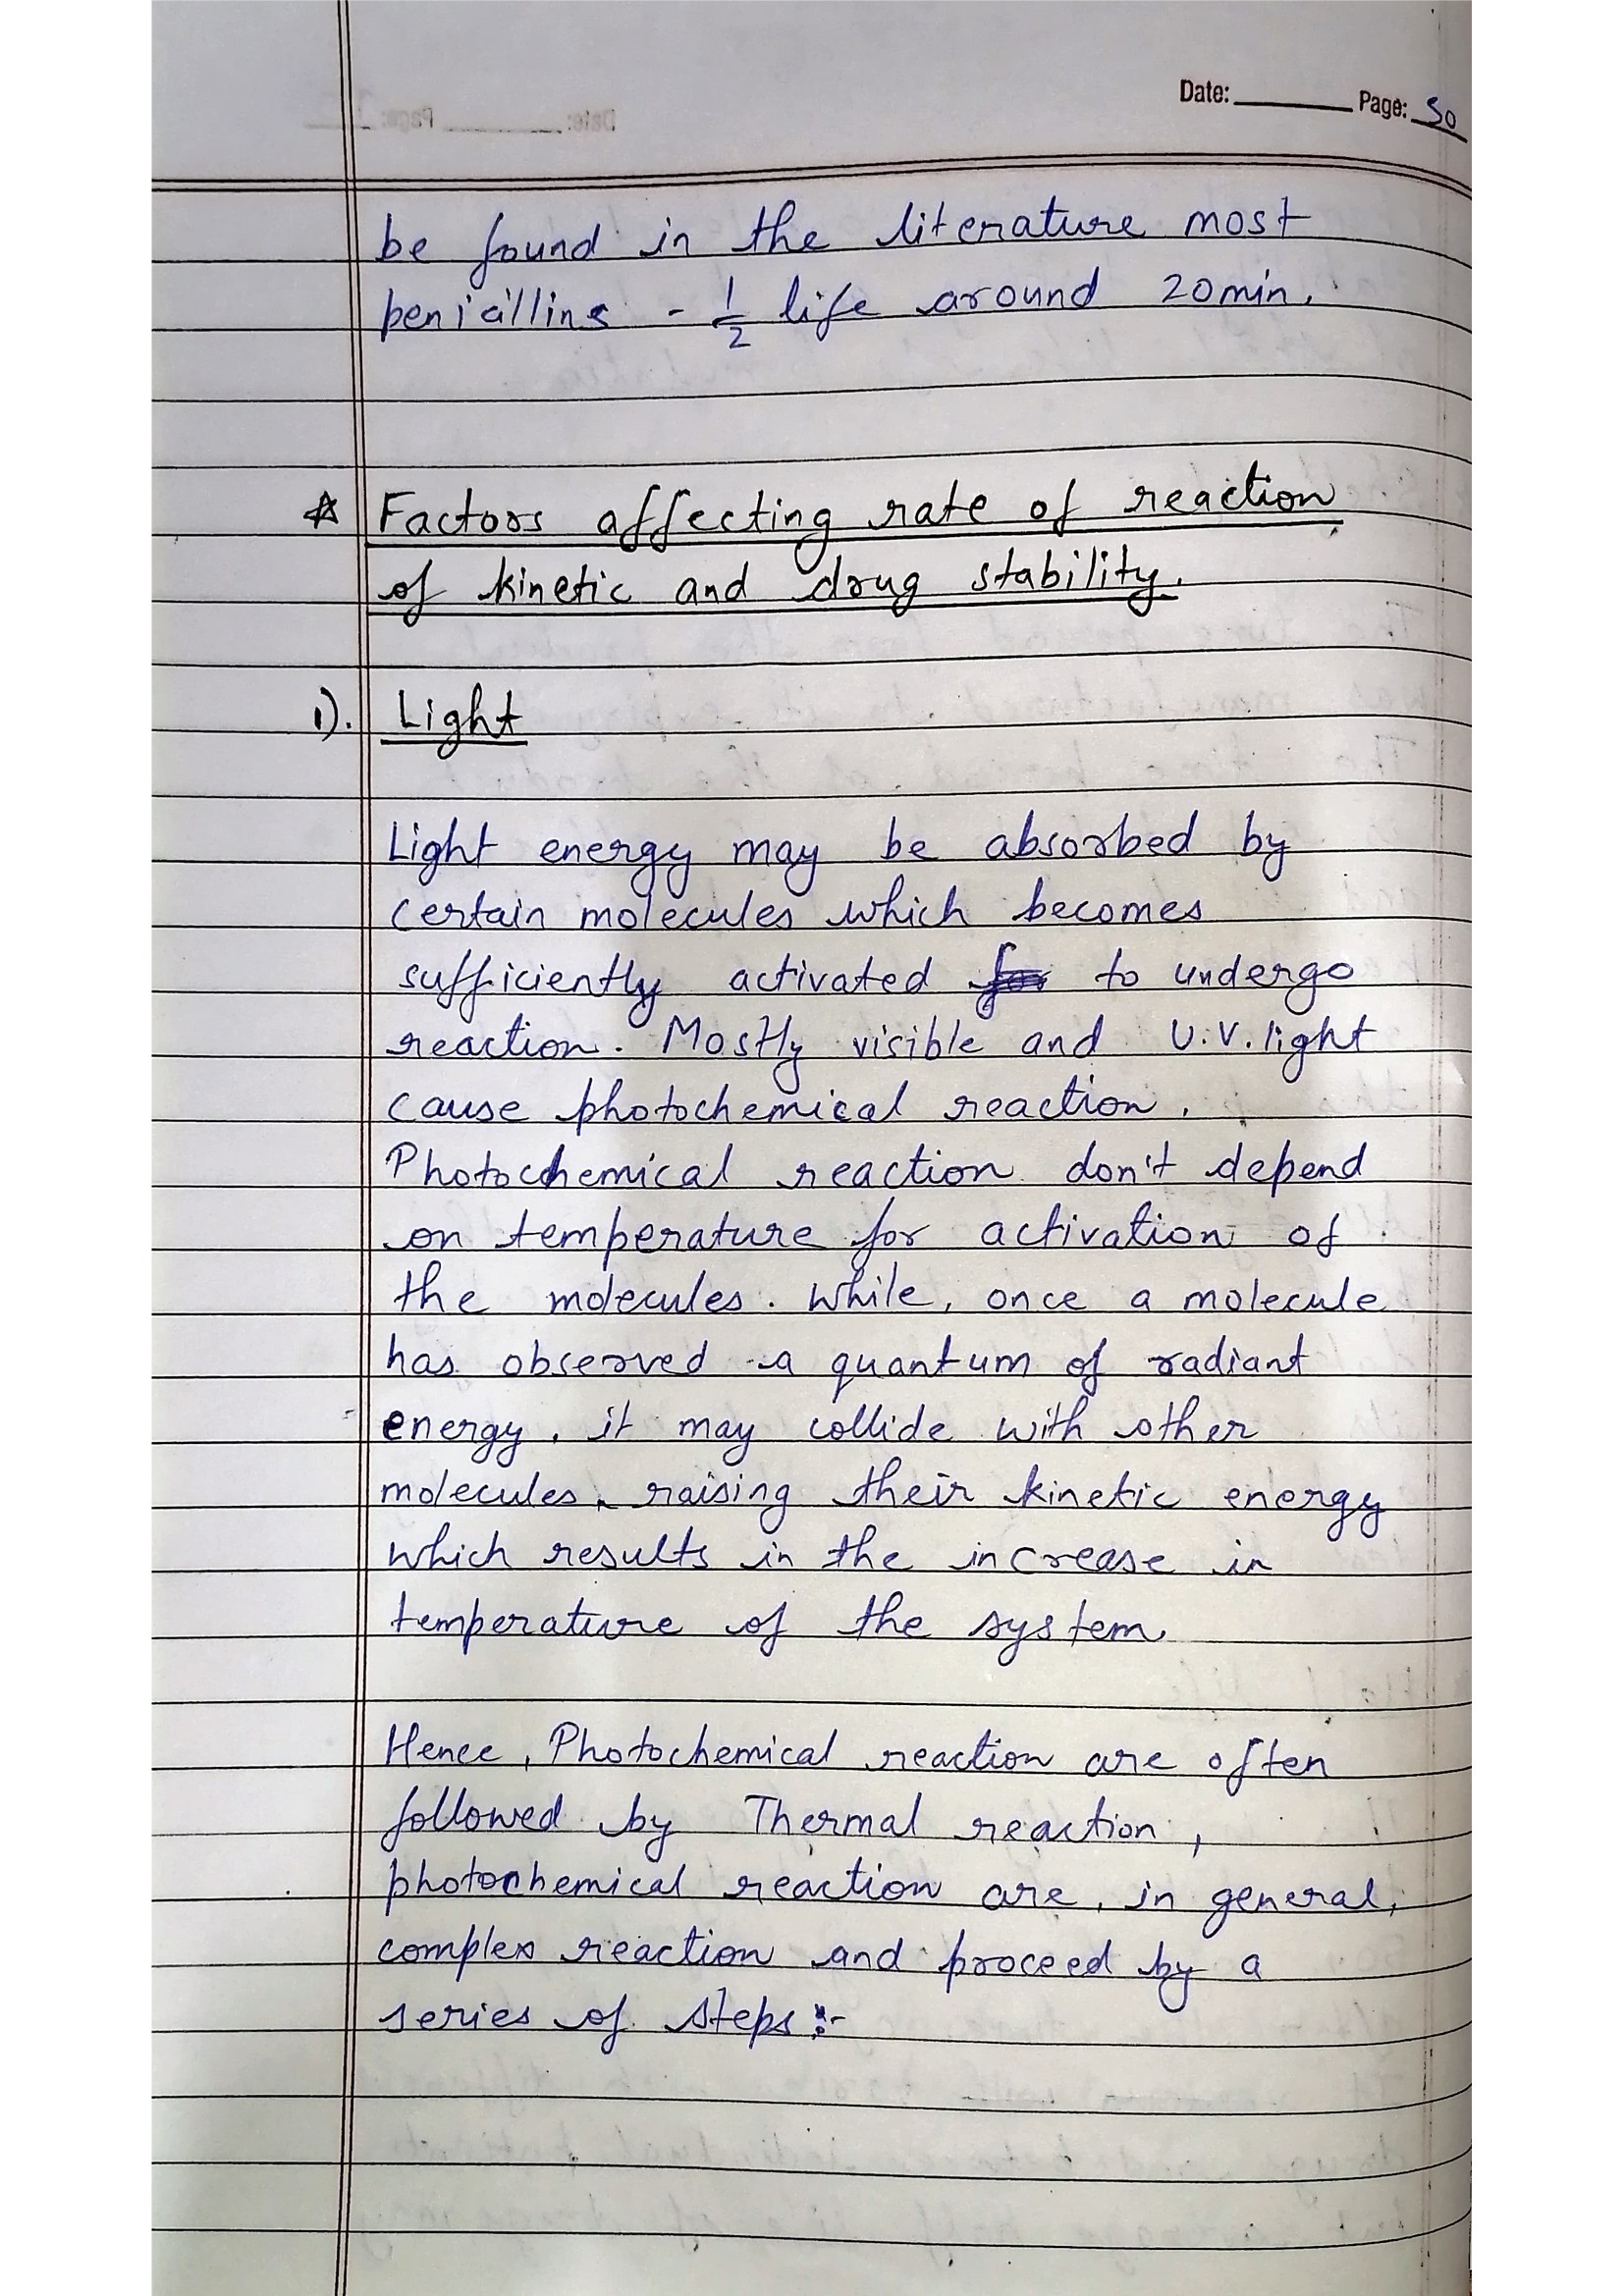 Date: Page: 50
be found in the literature most
penicillins - 1/2 life around 20min.
☆ Factors affecting rate of reaction
of kinetic and drug stability.
1). Light
Light energy may be absorbed by
certain molecules which becomes
sufficiently activated to undergo
reaction. Mostly visible and U.V. light
cause photochemical reaction.
Photochemical reaction don't depend
on temperature for activation of
the molecules. While, once a molecule
has observed a quantum of radiant
energy, it may collide with other
molecules, raising their kinetic energy
which results in the increase in
temperature of the system.
Hence, Photochemical reaction are often
followed by Thermal reaction,
photochemical reaction are, in general,
complex reaction and proceed by a
series of steps :-